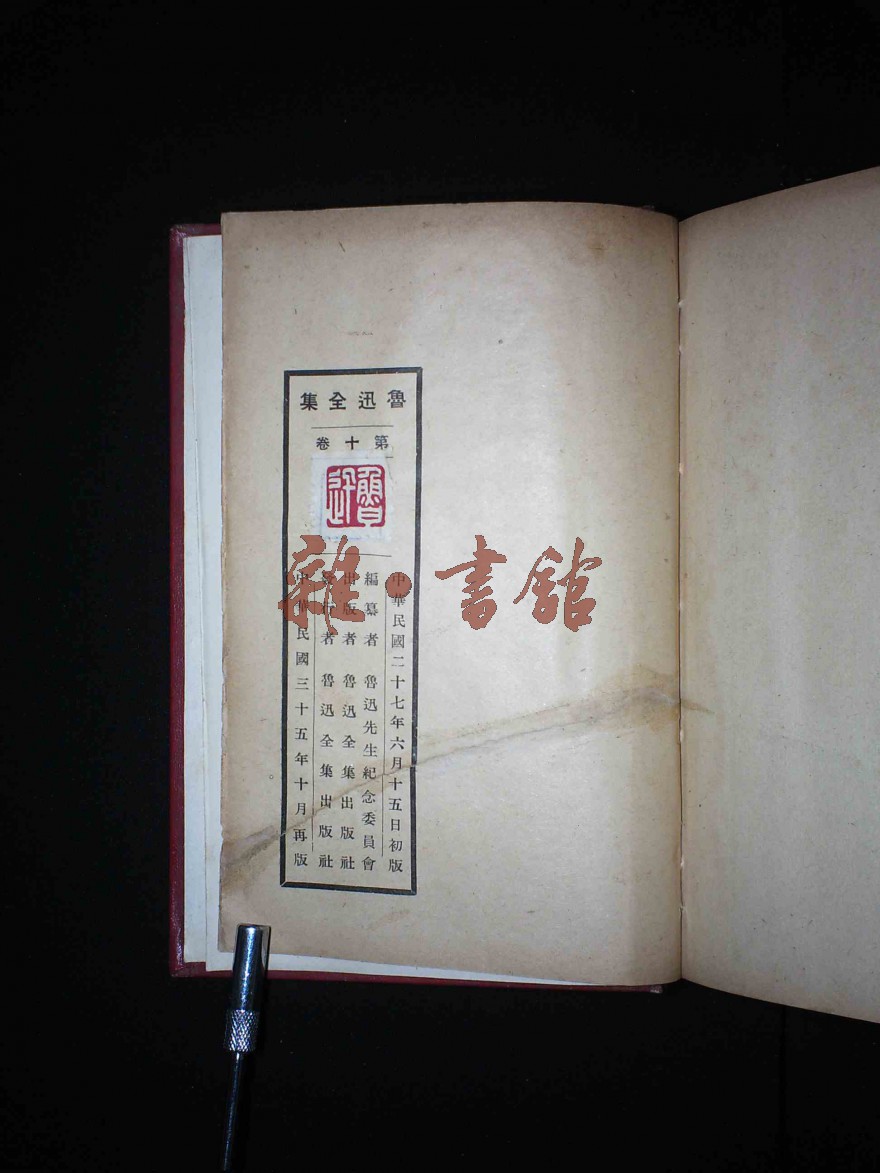 魯迅全集
第十卷
魯迅
中華民國二十七年六月十五日初版
編纂者 魯迅先生紀念委員會
出版者 魯迅全集出版社
發行者 魯迅全集出版社
中華民國三十五年十月再版
雜·書館